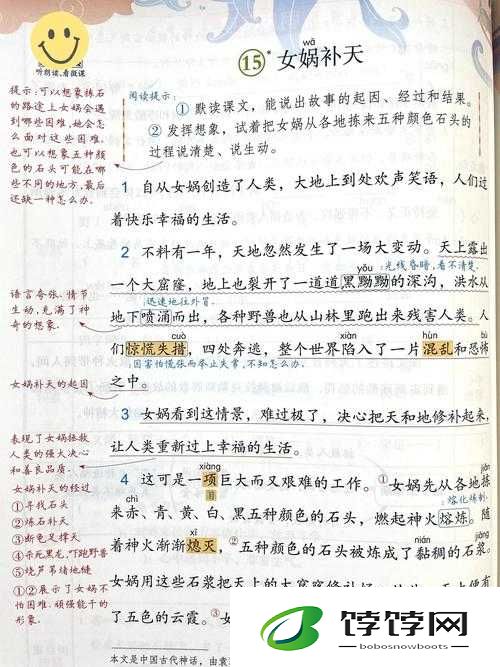 听朗读,看微课
wā
15* 女娲补天
提示:可以想象拣石
的路途上女娲会遇
到哪些困难,她会怎
么面对这些困难,
也可以想象五种颜
色的石头可能在哪
些不同的地方,最后
还缺一种怎么办。
阅读提示:
① 默读课文,能说出故事的起因、经过和结果。
② 发挥想象,试着把女娲从各地拣来五种颜色石头的
过程说清楚、说生动。
1 自从女娲创造了人类,大地上到处欢声笑语,人们过
着快乐幸福的生活。
2 不料有一年,天地忽然发生了一场大变动。天上露出
yǒu 光线昏暗,看不清楚。
一个大窟窿,地上也裂开了一道道黑黝黝的深沟,洪水从
迅速地往外冒。
地下喷涌而出,各种野兽也从山林里跑出来残害人类。人
cuò xiàn hùn bù
们惊慌失措,四处奔逃,整个世界陷入了一片混乱和恐怖
因害怕慌张而举止失常,不知怎么办。
之中。
语言夸张、情节
生动,充满了神
奇的想象。
女娲补天的起因
3 女娲看到这情景,难过极了,决心把天和地修补起来,
让人类重新过上幸福的生活。
表现了女娲拯救
人类的强大决心
和善良品质。
女娲补天的经过
①寻找石头
②炼石补天
③断龟足撑天
④杀死黑龙,吓跑野兽
⑤烧芦苇堵地缝
①②展示了女娲不
怕困难、顽强能干的
形象。
xiàng jiǎn
4 这可是一项巨大而又艰难的工作。①女娲先从各地拣
chì 熔化炼制。
来赤、青、黄、白、黑五种颜色的石头,燃起神火熔炼。随
xī nián
着神火渐渐熄灭,②五种颜色的石头被炼成了黏稠的石浆。
女娲用这些石浆把天上的大窟窿修补好
了五色的云霞。③女
本文是中国古代神话,由袁
饽饽网
www.bobosnowboots.com